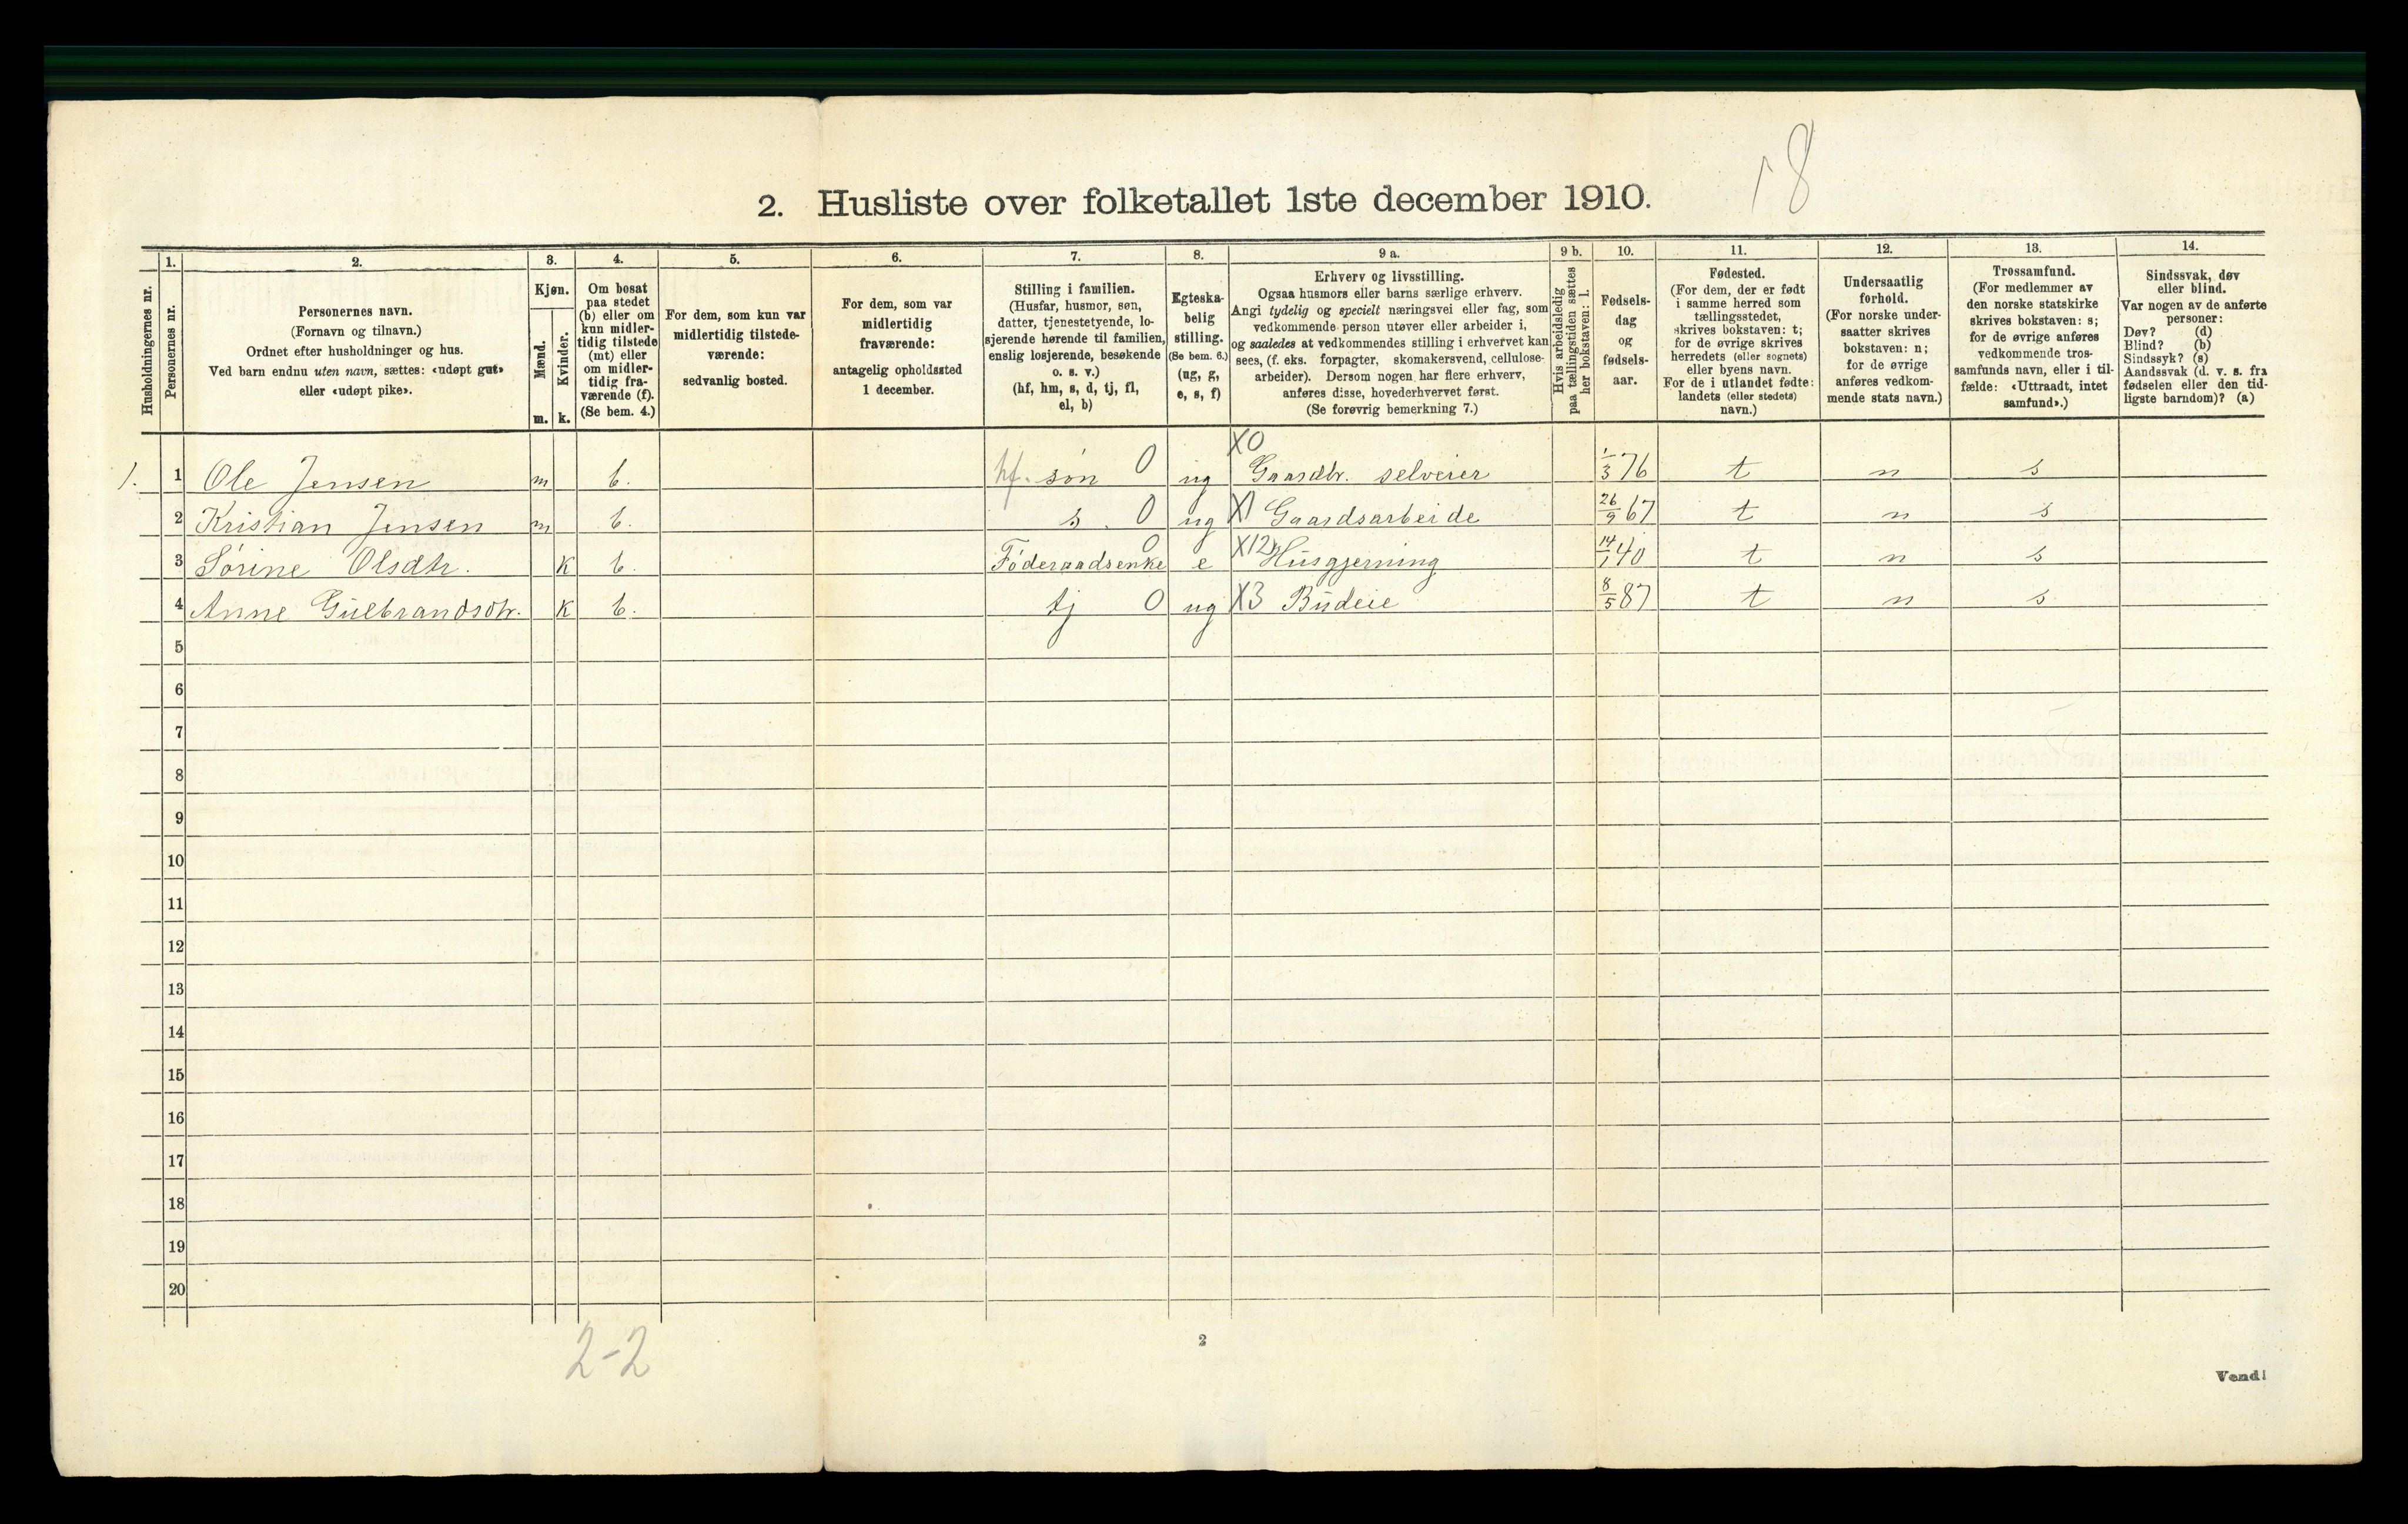 18
2. Husliste over folketallet 1ste december 1910.
Husholdningernes nr.
1.
Personernes nr.
2.
Personernes navn.
(Fornavn og tilnavn.)
Ordnet efter husholdninger og hus.
Ved barn endnu uten navn, sættes: «udøpt gut»
eller «udøpt pike».
3.
Kjøn.
Mænd.
Kvinder.
m. k.
4.
Om bosat
paa stedet
(b) eller om
kun midler-
tidig tilstede
(mt) eller
om midler-
tidig fra-
værende (f).
(Se bem. 4.)
5.
For dem, som kun var
midlertidig tilstede-
værende:
sedvanlig bosted.
6.
For dem, som var
midlertidig
fraværende:
antagelig opholdssted
1 december.
7.
Stilling i familien.
(Husfar, husmor, søn,
datter, tjenestetyende, lo-
sjerende hørende til familien,
enslig losjerende, besøkende
o. s. v.)
(hf, hm, s, d, tj, fl,
el, b)
8.
Egteska-
belig
stilling.
(Se bem. 6.)
(ug, g,
e, s, f)
9 a.
Erhverv og livsstilling.
Ogsaa husmors eller barns særlige erhverv.
Angi tydelig og specielt næringsvei eller fag, som
vedkommende person utøver eller arbeider i,
og saaledes at vedkommendes stilling i erhvervet kan
sees, (f. eks. forpagter, skomakersvend, cellulose-
arbeider). Dersom nogen har flere erhverv,
anføres disse, hovederhvervet først.
(Se forøvrig bemerkning 7.)
9 b.
Hvis arbeidsledig
paa tællingstiden sættes
her bokstaven: l.
10.
Fødsels-
dag
og
fødsels-
aar.
11.
Fødested.
(For dem, der er født
i samme herred som
tællingsstedet,
skrives bokstaven: t;
for de øvrige skrives
herredets (eller sognets)
eller byens navn.
For de i utlandet fødte:
landets (eller stedets)
navn.)
12.
Undersaatlig
forhold.
(For norske under-
saatter skrives
bokstaven: n;
for de øvrige
anføres vedkom-
mende stats navn.)
13.
Trossamfund.
(For medlemmer av
den norske statskirke
skrives bokstaven: s;
for de øvrige anføres
vedkommende tros-
samfunds navn, eller i til-
fælde: «Uttraadt, intet
samfund».)
14.
Sindssvak, døv
eller blind.
Var nogen av de anførte
personer:
Døv? (d)
Blind? (b)
Sindssyk? (s)
Aandssvak (d. v. s. fra
fødselen eller den tid-
ligste barndom)? (a)
1. 1 Ole Jensen m b. hf. søn 0 ug X0 Gaardbr. selveier 1/3 76 t n s
2 Kristian Jensen m b. s. 0 ug X1 Gaardsarbeide 26/9 67 t n s
3 Sørine Olsdtr. k b. Føderaadsenke 0 e X12 Husgjerning 14/1 40 t n s
4 Anne Gulbrandsdtr. k b. tj 0 ug X3 Budeie 8/5 87 t n s
5
6
7
8
9
10
11
12
13
14
15
16
17
18
19
20
2-2
2
Vend!